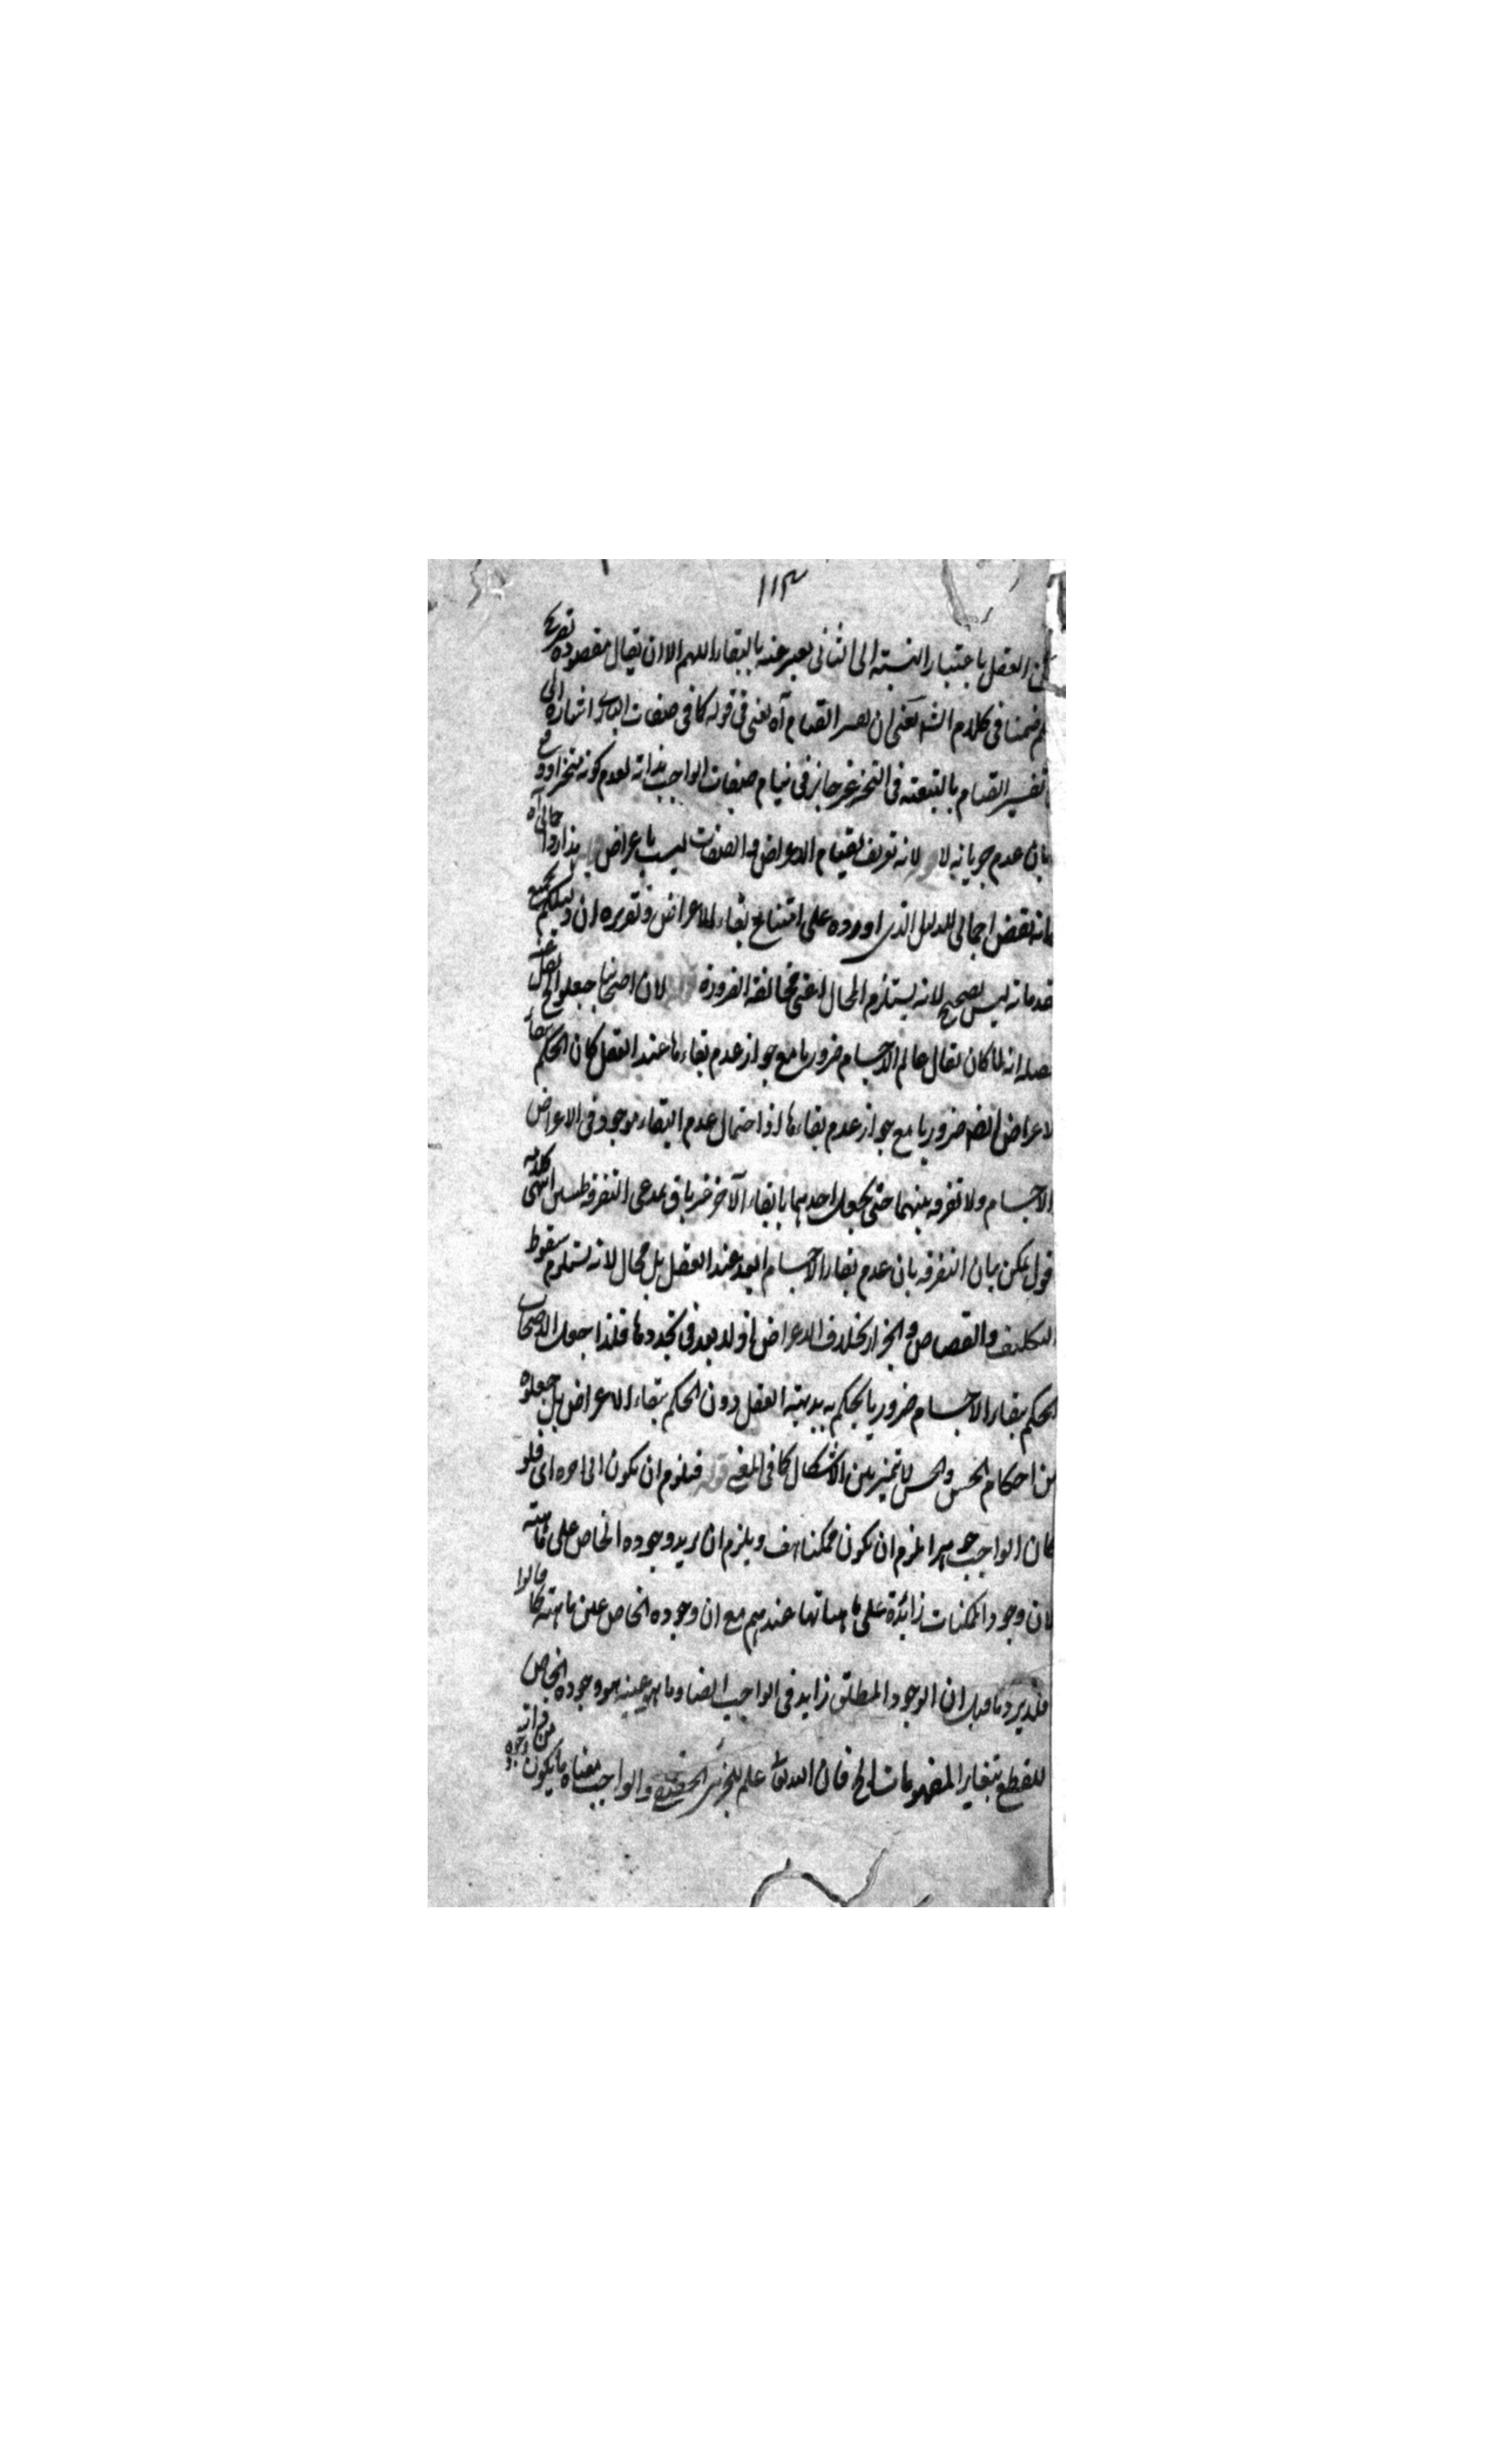 ١١٣
العقل باعتبار النسبة الى الثانى يعبر عنه بالبقاء اللهم الا ان يقال مقصوده تفريع
ضمنا فى كلام الش يعنى ان تفسير القيام آه يعنى فى قوله كما فى صفات البارى اشارة الى
تفسير القيام بالتبعية فى التحيز غير جايز فى قيام صفات الواجب بذاته لعدم كونه متحيزا ودفع
بان عدم جريانه لا لانه تعريف لقيام الاعراض والصفات ليست باعراض هذا رد آه
نقض اجمالى للدليل الذى اورده على امتناع بقاء الاعراض وتقريره ان دليلكم بجميع
مقدماته ليس بصحيح لانه يستلزم المحال اعنى مخالفة الضرورة لان اصحابنا جعلوا الخ
انه لما كان بقاء الاجسام ضروريا مع جواز عدم بقاءها عند العقل كان الحكم ببقاء
الاعراض ايضا ضروريا مع جواز عدم بقاءها اذ احتمال عدم البقاء موجود فى الاعراض
الاجسام ولا تفرقة بينهما حتى يجعل احدهما باقيا الآخر غير باق مدعى التفرقة انتهى كلامه
اقول يمكن بيان التفرقة بان عدم بقاء الاجسام ابعد عند العقل بل محال لانه يستلزم سقوط
التكليف والقصاص والجزاء بخلاف الاعراض اذ لا بعد فى تجددها فلذا جعل الاصحاب
الحكم ببقاء الاجسام ضروريا يحكم به بديهة العقل دون الحكم ببقاء الاعراض بل جعلوه
من احكام الحس والحس لا تميز بين الاشكال كما فى قوله فيلزم ان يكون الى اخره اى فلو
كان الواجب جوهرا لزم ان يكون ممكنا هف ويلزم ان يزيد وجوده الخاص على ماهيته
لان وجود الممكنات زائدة على ماهياتها عندهم مع ان وجوده الخاص عين ماهيته كما قالوا
فلا يرد ما قيل ان الوجود المطلق زايد فى الواجب ايضا وما هو عينه هو وجوده الخاص
للقطع بتغاير المفهومات الخ فان الله تعالى علم للجزئى الحقيقى والواجب معناه ما يكون وجوده من ذاته